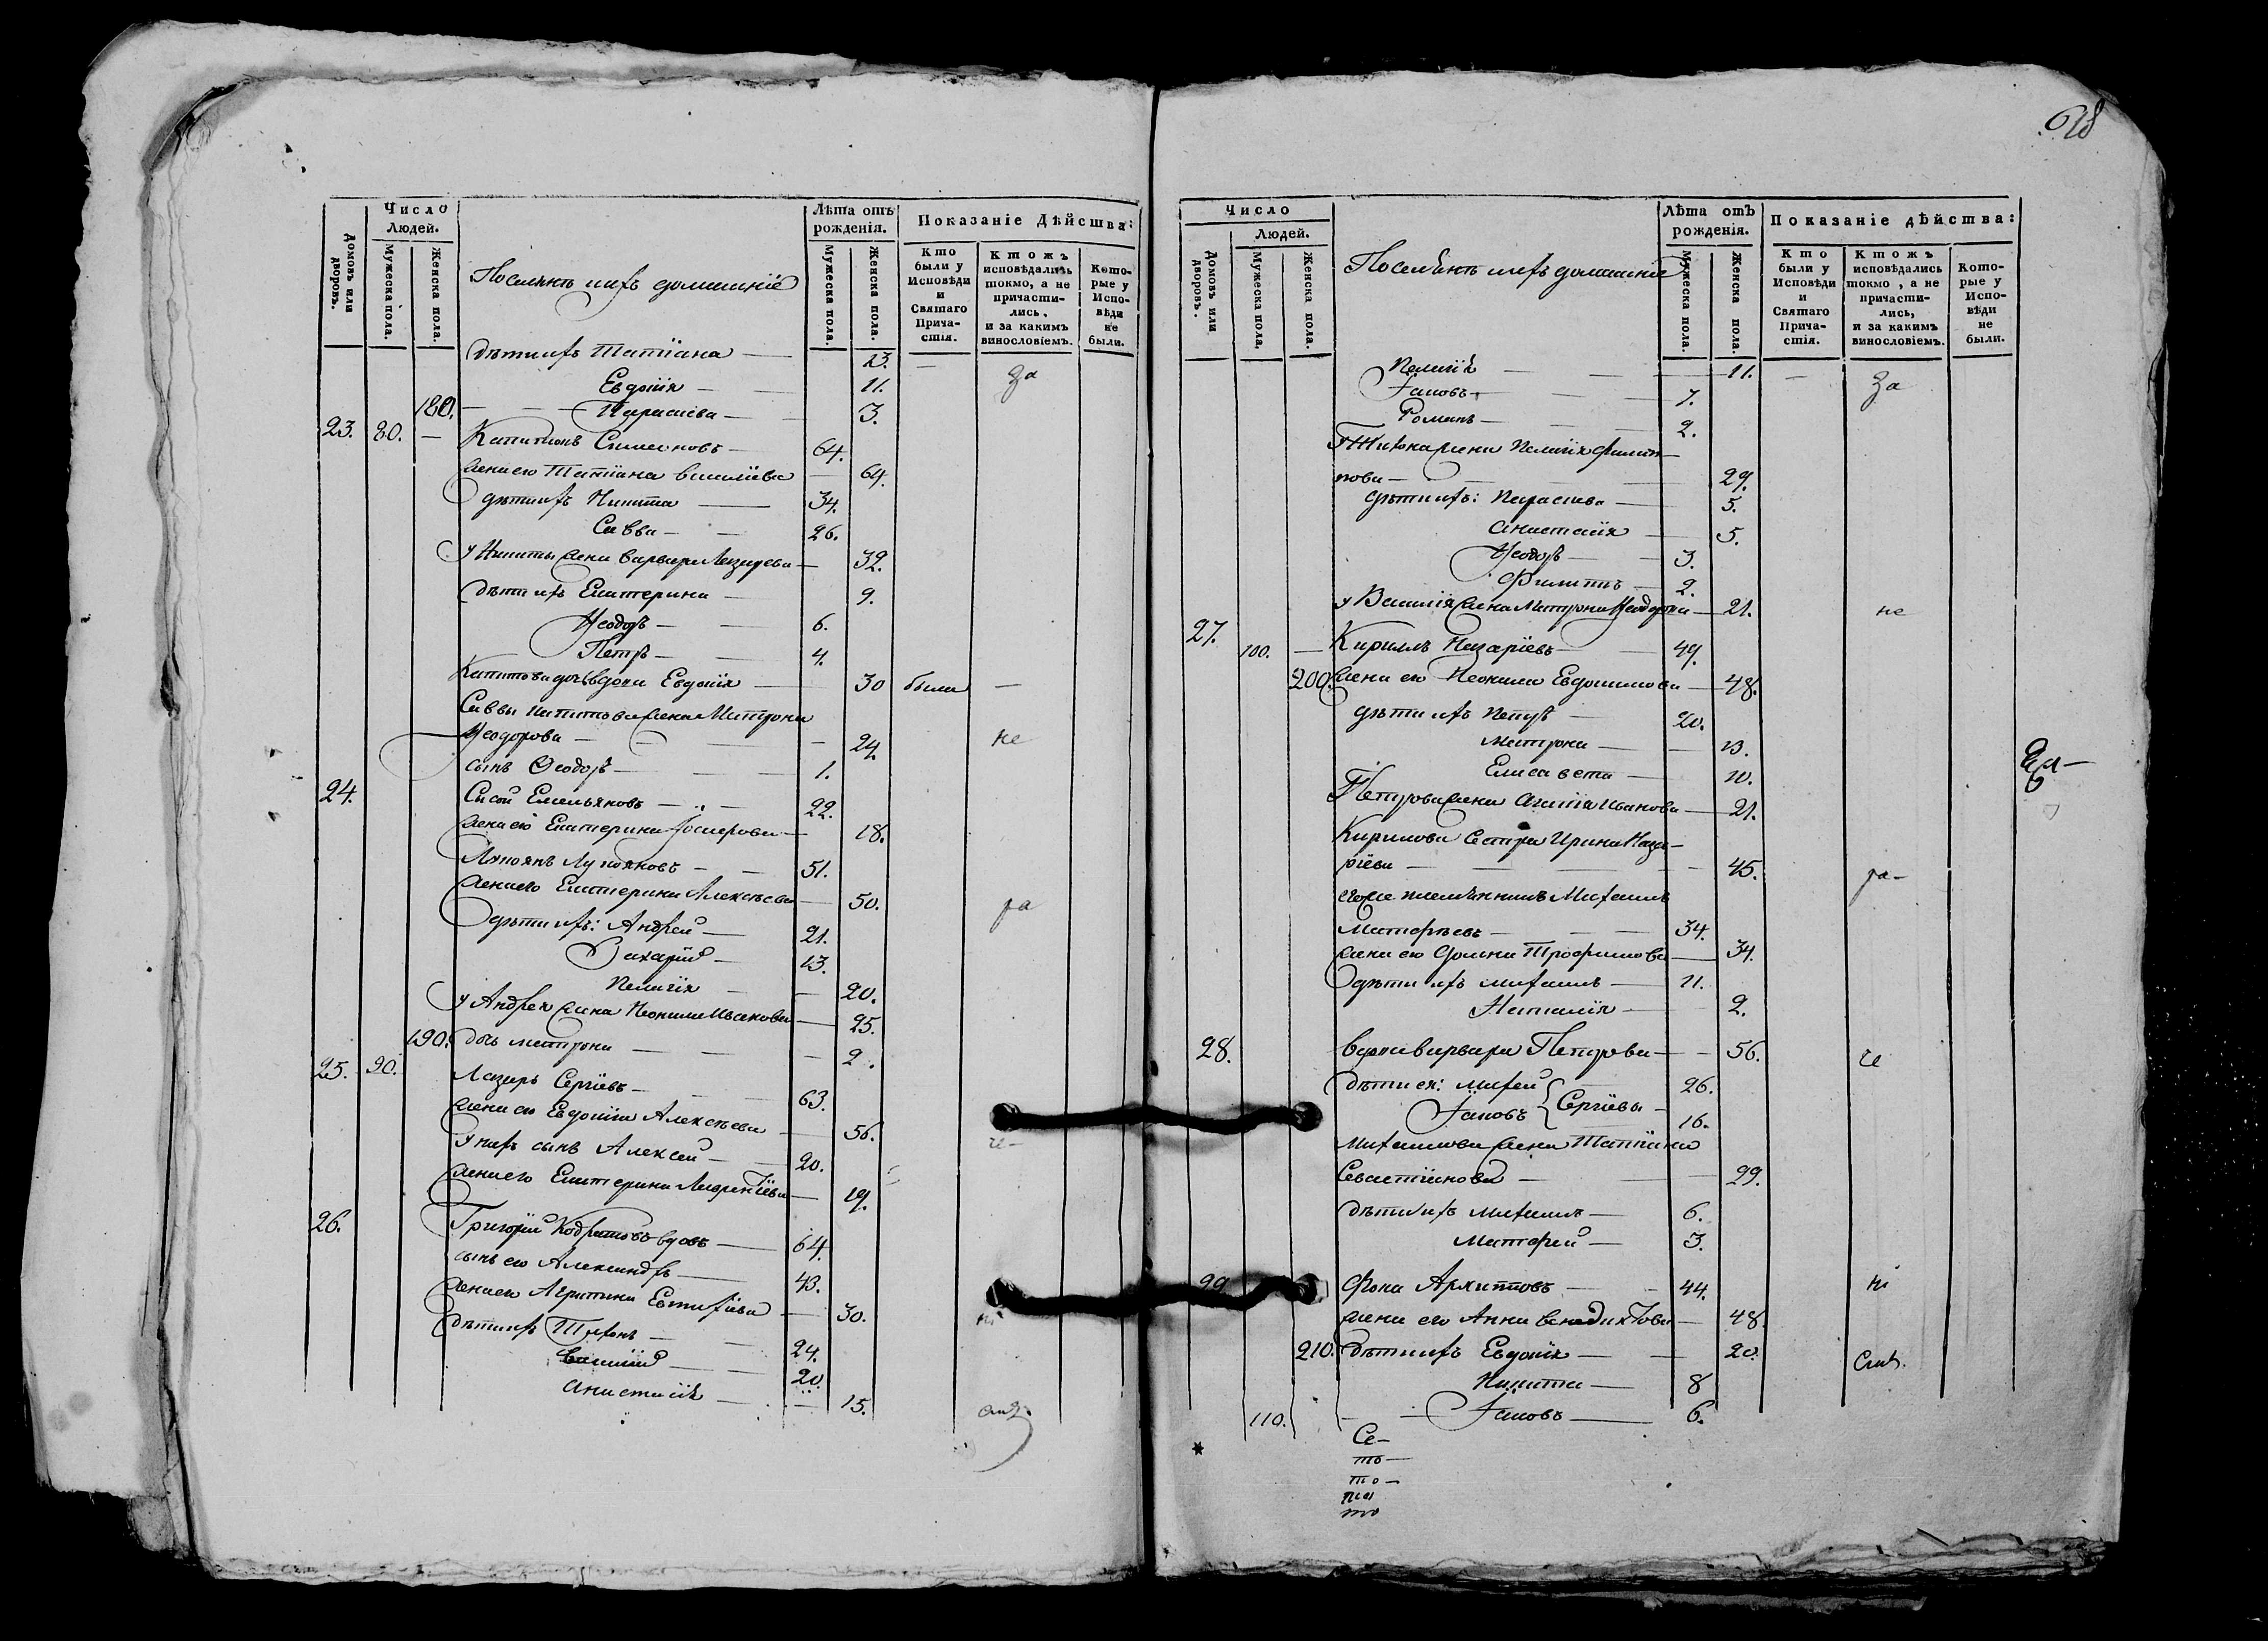 Число
Людей.
Домовъ или дворовъ.
Мужеска пола.
Женска пола.
Поселянѣ ихъ домашніе
Лѣта отъ рожденія.
Мужеска пола.
Женска пола.
Показаніе Дѣйства:
Кто были у Исповѣди и Святаго Причастія.
Ктожъ исповѣдались токмо, а не причастились, и за какимъ винословіемъ.
Которые у Исповѣди не были.
дѣти ихъ Татіана — 13. — За
Евдокія — 11.
180. — Параскева — 3.
23. 80. — Капитонъ Симеоновъ — 64.
жена его Татіана Василіева — 64.
дѣти ихъ Никита — 34.
Савва — 26.
у Никиты жена Варвара Лазарева — 32.
дѣти ихъ Екатерина — 9.
Ѳеодоръ — 6.
Петръ — 4.
дочь вдова Евдокія — 30 были —
Саввы жена Матрона
Ѳеодорова — 24. не
сынъ Ѳеодоръ — 1.
24. Сисой Емельяновъ — 22.
жена его Екатерина — 18.
Лукоянъ Лукояновъ — 51.
жена его Екатерина Алексѣева — 50. ра
дѣти ихъ: Андрей — 21.
Захарій — 13.
Пелагія — 20.
у Андрея жена Неонила Иванова — 25.
190. дочь Матрона — 2.
25. 90. Лазарь Сергіевъ — 63.
жена его Евдокія Алексѣева — 56. че-
у нихъ сынъ Алексей — 20.
жена его Екатерина Лаврентіева — 19.
26. Григорій вдовъ — 64.
сынъ его Александръ — 43.
жена его Агрипина — 30. ні
дѣти ихъ — 24.
Василій — 20.
Анастасія — 15. емъ
68
Число
Людей.
Домовъ или дворовъ.
Мужеска пола,
Женска пола.
Поселянѣ ихъ домашніе
Лѣта отъ рожденія.
Мужеска пола.
Женска пола.
Показаніе дѣйства:
Кто были у Исповѣди и Святаго Причастія.
Ктожъ исповѣдались токмо, а не причастились, и за какимъ винословіемъ.
Которые у Исповѣди не были.
Пелагія — 11. — За
Іаковъ — 7.
Романъ — 2.
жена Пелагія Филип-
пова — 29.
дѣти ихъ: Параскева — 5.
Анастасія — 5.
Ѳеодоръ — 3.
Филиппъ — 2.
у Василія жена Матрона Ѳеодорова — 21. не
27. 100. — Кирилъ Назаріевъ — 49.
200. жена его Неонила Евдокимова — 48.
дѣти ихъ Петръ — 20.
Матрона — 13.
Елисавета — 10.
Петрова жена Иванова — 21.
Кирилова сестра Ирина Наза-
ріева — 45. ра-
егоже племянникъ Михаилъ
Матфѣевъ — 34.
жена его Домна Трофимова — 34.
дѣти ихъ Михаилъ — 11.
Наталія — 2.
28. вдова Варвара Петрова — 56. че
дѣти ея: — 26.
Іаковъ { Сергіевы — 16.
Михаилова жена Татіана
Севастіанова — 29.
дѣти ихъ Михаилъ — 6.
Матфей — 3.
29 Фока Архиповъ — 44. ні
жена его Анна Венедиктова — 48.
210. дѣти ихъ Евдокія — 20. емъ.
Никита — 8
110. — Іаковъ — 6.
Се-
то-
то-